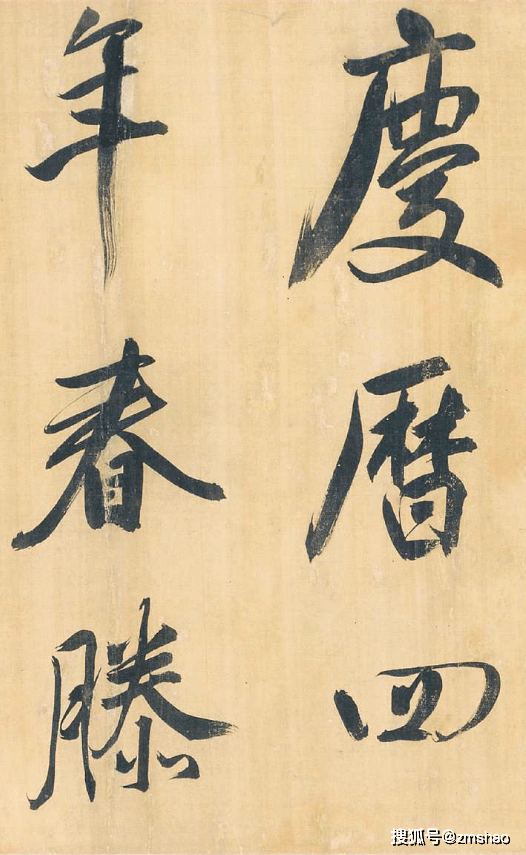 慶曆四
年春滕
搜狐号@zmshao